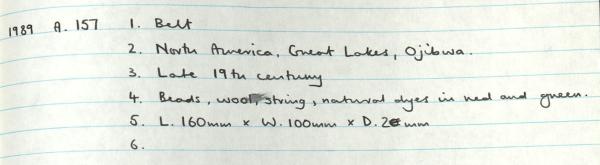 1989 A. 157 1. Belt
2. North America, Great Lakes, Ojibwa.
3. Late 19th century
4. Beads, wool, string, natural dyes in red and green.
5. L. 160mm x W. 100mm x D. 2mm
6.